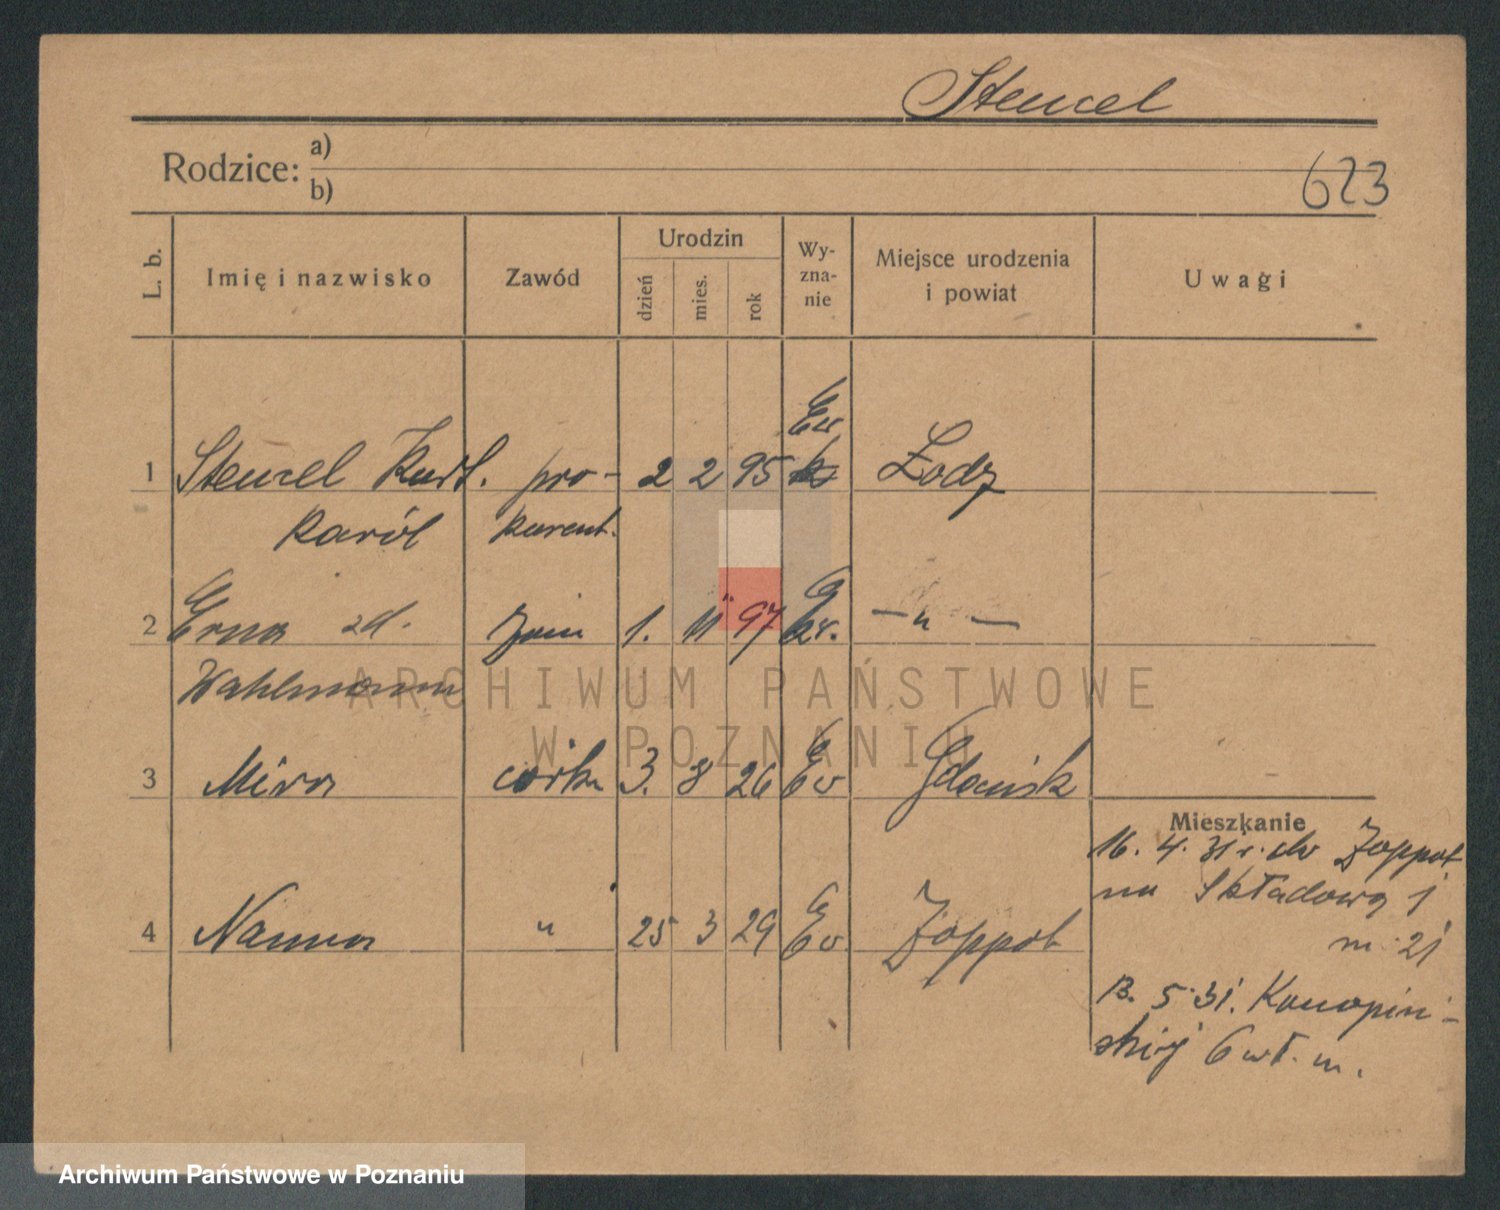 Stencel
Rodzice: a)
b)
623
L. b. Imię i nazwisko Zawód Urodzin dzień mies. rok Wy-zna-nie Miejsce urodzenia i powiat Uwagi
Ev
1 Stencel Kurt. pro- 2 2 95 Łodz
Karól kurent.
2 Erna zd. żona 1. 11 97 Ev. — " —
Wahlmann
3 Mira córka 3. 8 26 Ev Gdańsk
Mieszkanie
16. 4. 31 r. do Zoppot
na Składowa 1
4 Nanna " 25 3 29 Ev Zoppot
m. 21
13. 5. 31. Konopni-
skiej 6 wł. m.
ARCHIWUM PAŃSTWOWE
W POZNANIU
Archiwum Państwowe w Poznaniu